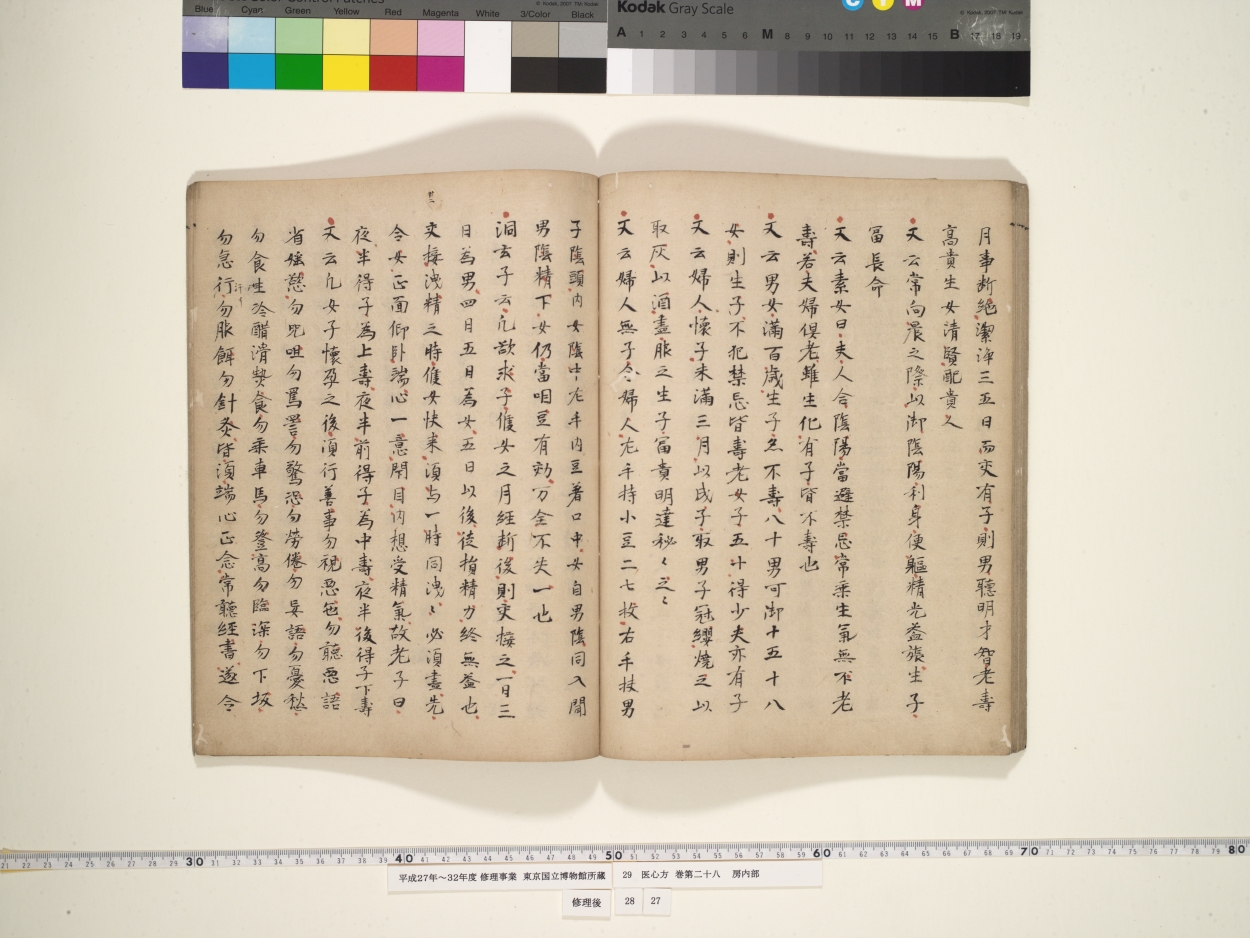 Blue Cyan Green Yellow Red Magenta White 3/Color Black
© Kodak, 2007 TM: Kodak
Kodak Gray Scale
C Y M
© Kodak, 2007 TM: Kodak
A 1 2 3 4 5 6 M 8 9 10 11 12 13 14 15 B 17 18 19
月事断絶潔浄三五日而交有子則男聰明才智老壽
高貴生女清賢配貴人
又云常向晨之際以御陰陽利身便軀精光益張生子
冨長命
又云素女曰夫人合陰陽當避禁忌常乘生氣無不老
壽若夫婦倶老雖生化有子皆不壽也
又云男女滿百歳生子亦不壽八十男可御十五十八
女則生子不犯禁忌皆壽老女子五十得少夫亦有子
又云婦人懷子未滿三月以戊子取男子冠纓燒之以
取灰以酒盡服之生子冨貴明達秘々之々
又云婦人無子令婦人左手持小豆二七枚右手扶男
子陰頭内女陰中左手内豆著口中女自男陰同入聞
男陰精下女仍當咽豆有効万全不失一也
洞玄子云凡欲求子候女之月經断後則交接之一日三
日為男四日五日為女五日以後徒損精力終無益也
交接洩精之時候女快来須与一時同洩々必須盡先
令女正面仰卧端心一意閇目内想受精氣故老子曰
夜半得子為上壽夜半前得子為中壽夜半後得子下壽
又云凡女子懷孕之後須行善事勿視惡色勿聽惡語
省婬慾勿咒咀勿罵詈勿驚恐勿勞倦勿妄語勿憂愁
勿食生冷醋滑熱食勿乘車馬勿登高勿臨深勿下坂
勿急行勿服餌勿針灸皆須端心正念常聽經書遂令
30 40 50 60 70 80
平成27年〜32年度 修理事業 東京国立博物館所蔵
29 医心方 巻第二十八 房内部
修理後
28 27